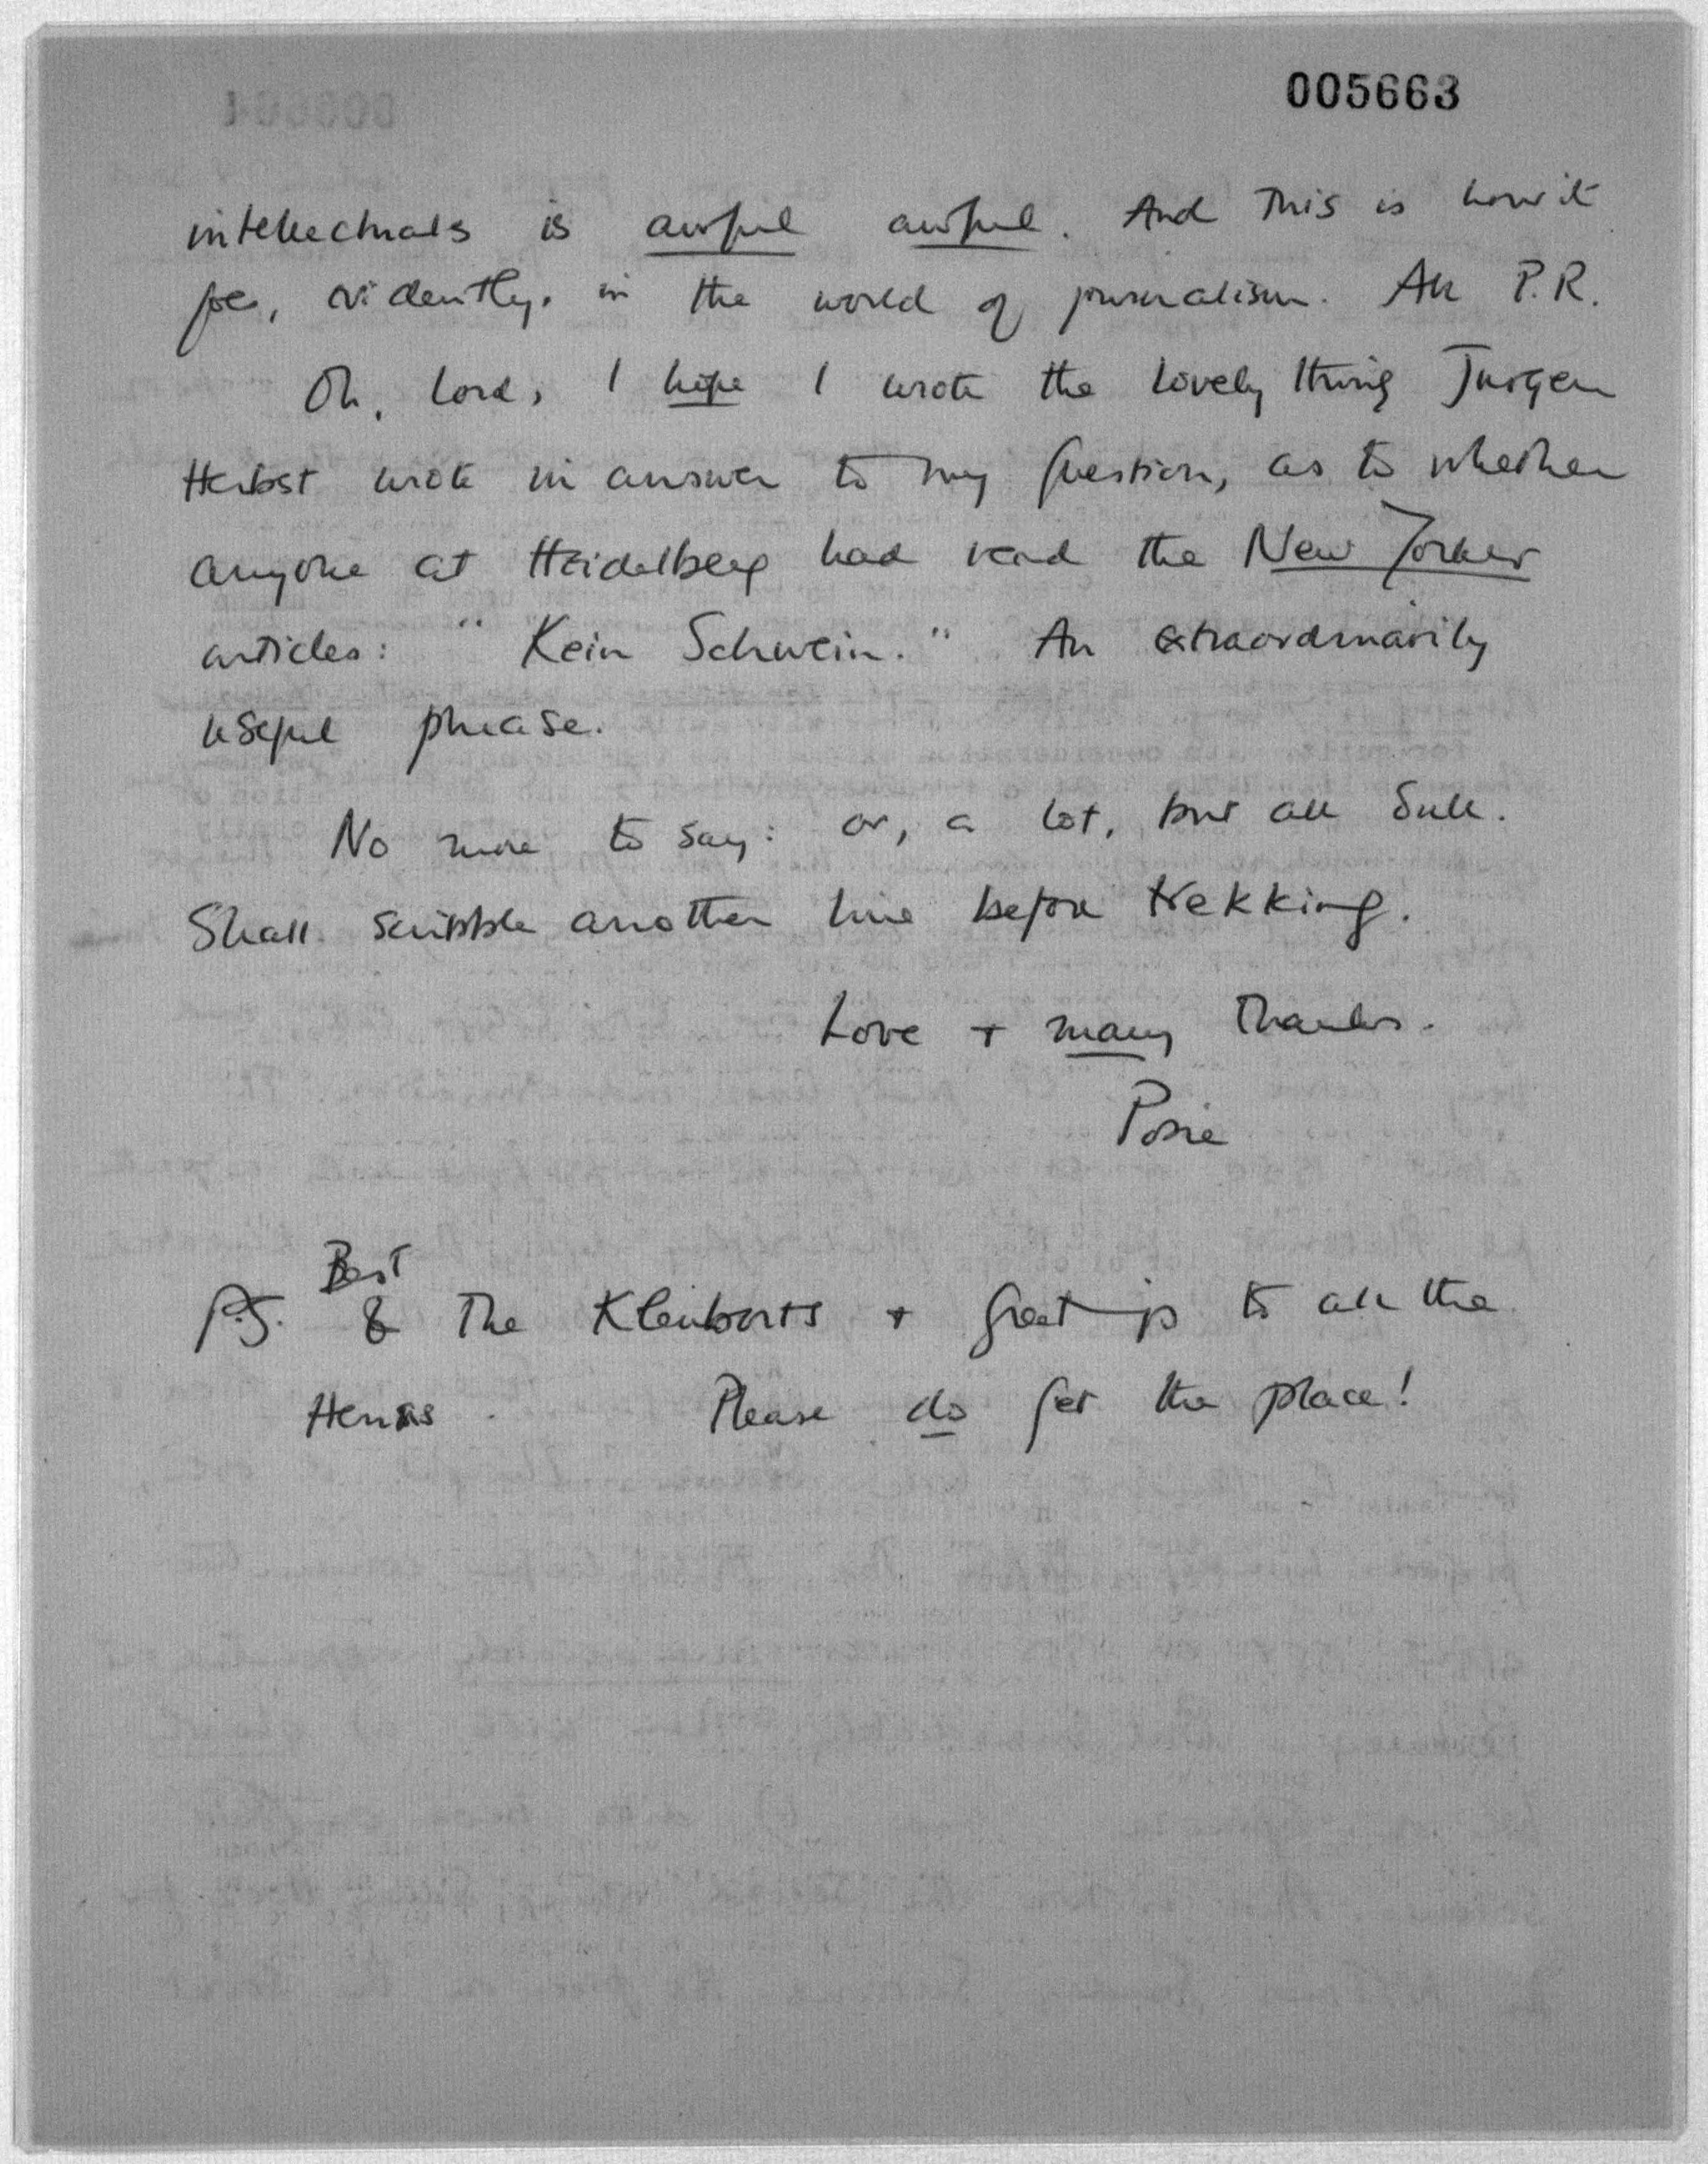 005663
intellectuals is awful awful. And this is how it
goes, evidently, in the world of journalism. All P.R.
Oh, Lord, I hope I wrote the lovely thing Jurgen
Herbst wrote in answer to my question, as to whether
anyone at Heidelberg had read the New Yorker
articles: "Kein Schwein." An extraordinarily
useful phrase.
No more to say: or, a lot, but all dull.
Shall scribble another line before trekking.
Love + many thanks.
Rosie
Best
P.S. to the Klenborts + greetings to all the
Please do get the place!